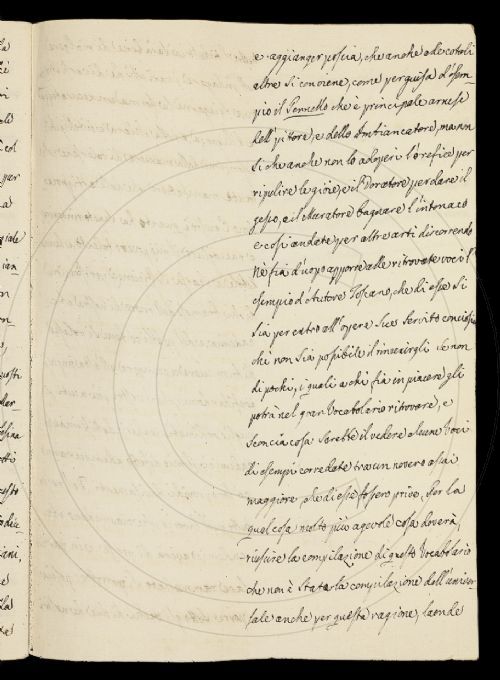 e aggianger poscia, che anche ad ecotali
altre si conviene, come per guisa d'esem-
pio il Pennello che è principale arnese
dell pitore, e dello Imbiancatore, ma non
si che anche non lo adoperi l'orefice per
ripulire le gioie, e il Doratore per dare il
gesso, e il Muratore bagnare l'intonaco
e così andate per altre arti discorrendo
Nè fia d'uopo apporre alle ritrovate voci l'
esempio d'Autore Toscano, che di esse si
sia per entro all'opere sue servito conciosia
chè non sia possibile il rinvenirgli se non
di pochi, i quali a chi fia in piacere gli
potrà nel gran Vocabolario ritrovare, e
sconcia cosa sarebbe il vedere alcune Voci
di esempi corredate tra un novero assai
maggiore, che di esse fossero prive, Per la
qual cosa molto più agevole cosa doverà
riuscire la compilazione di questo Vocabolario
che non è stata la compilazione dell'univer-
sale anche per questa ragione, laonde